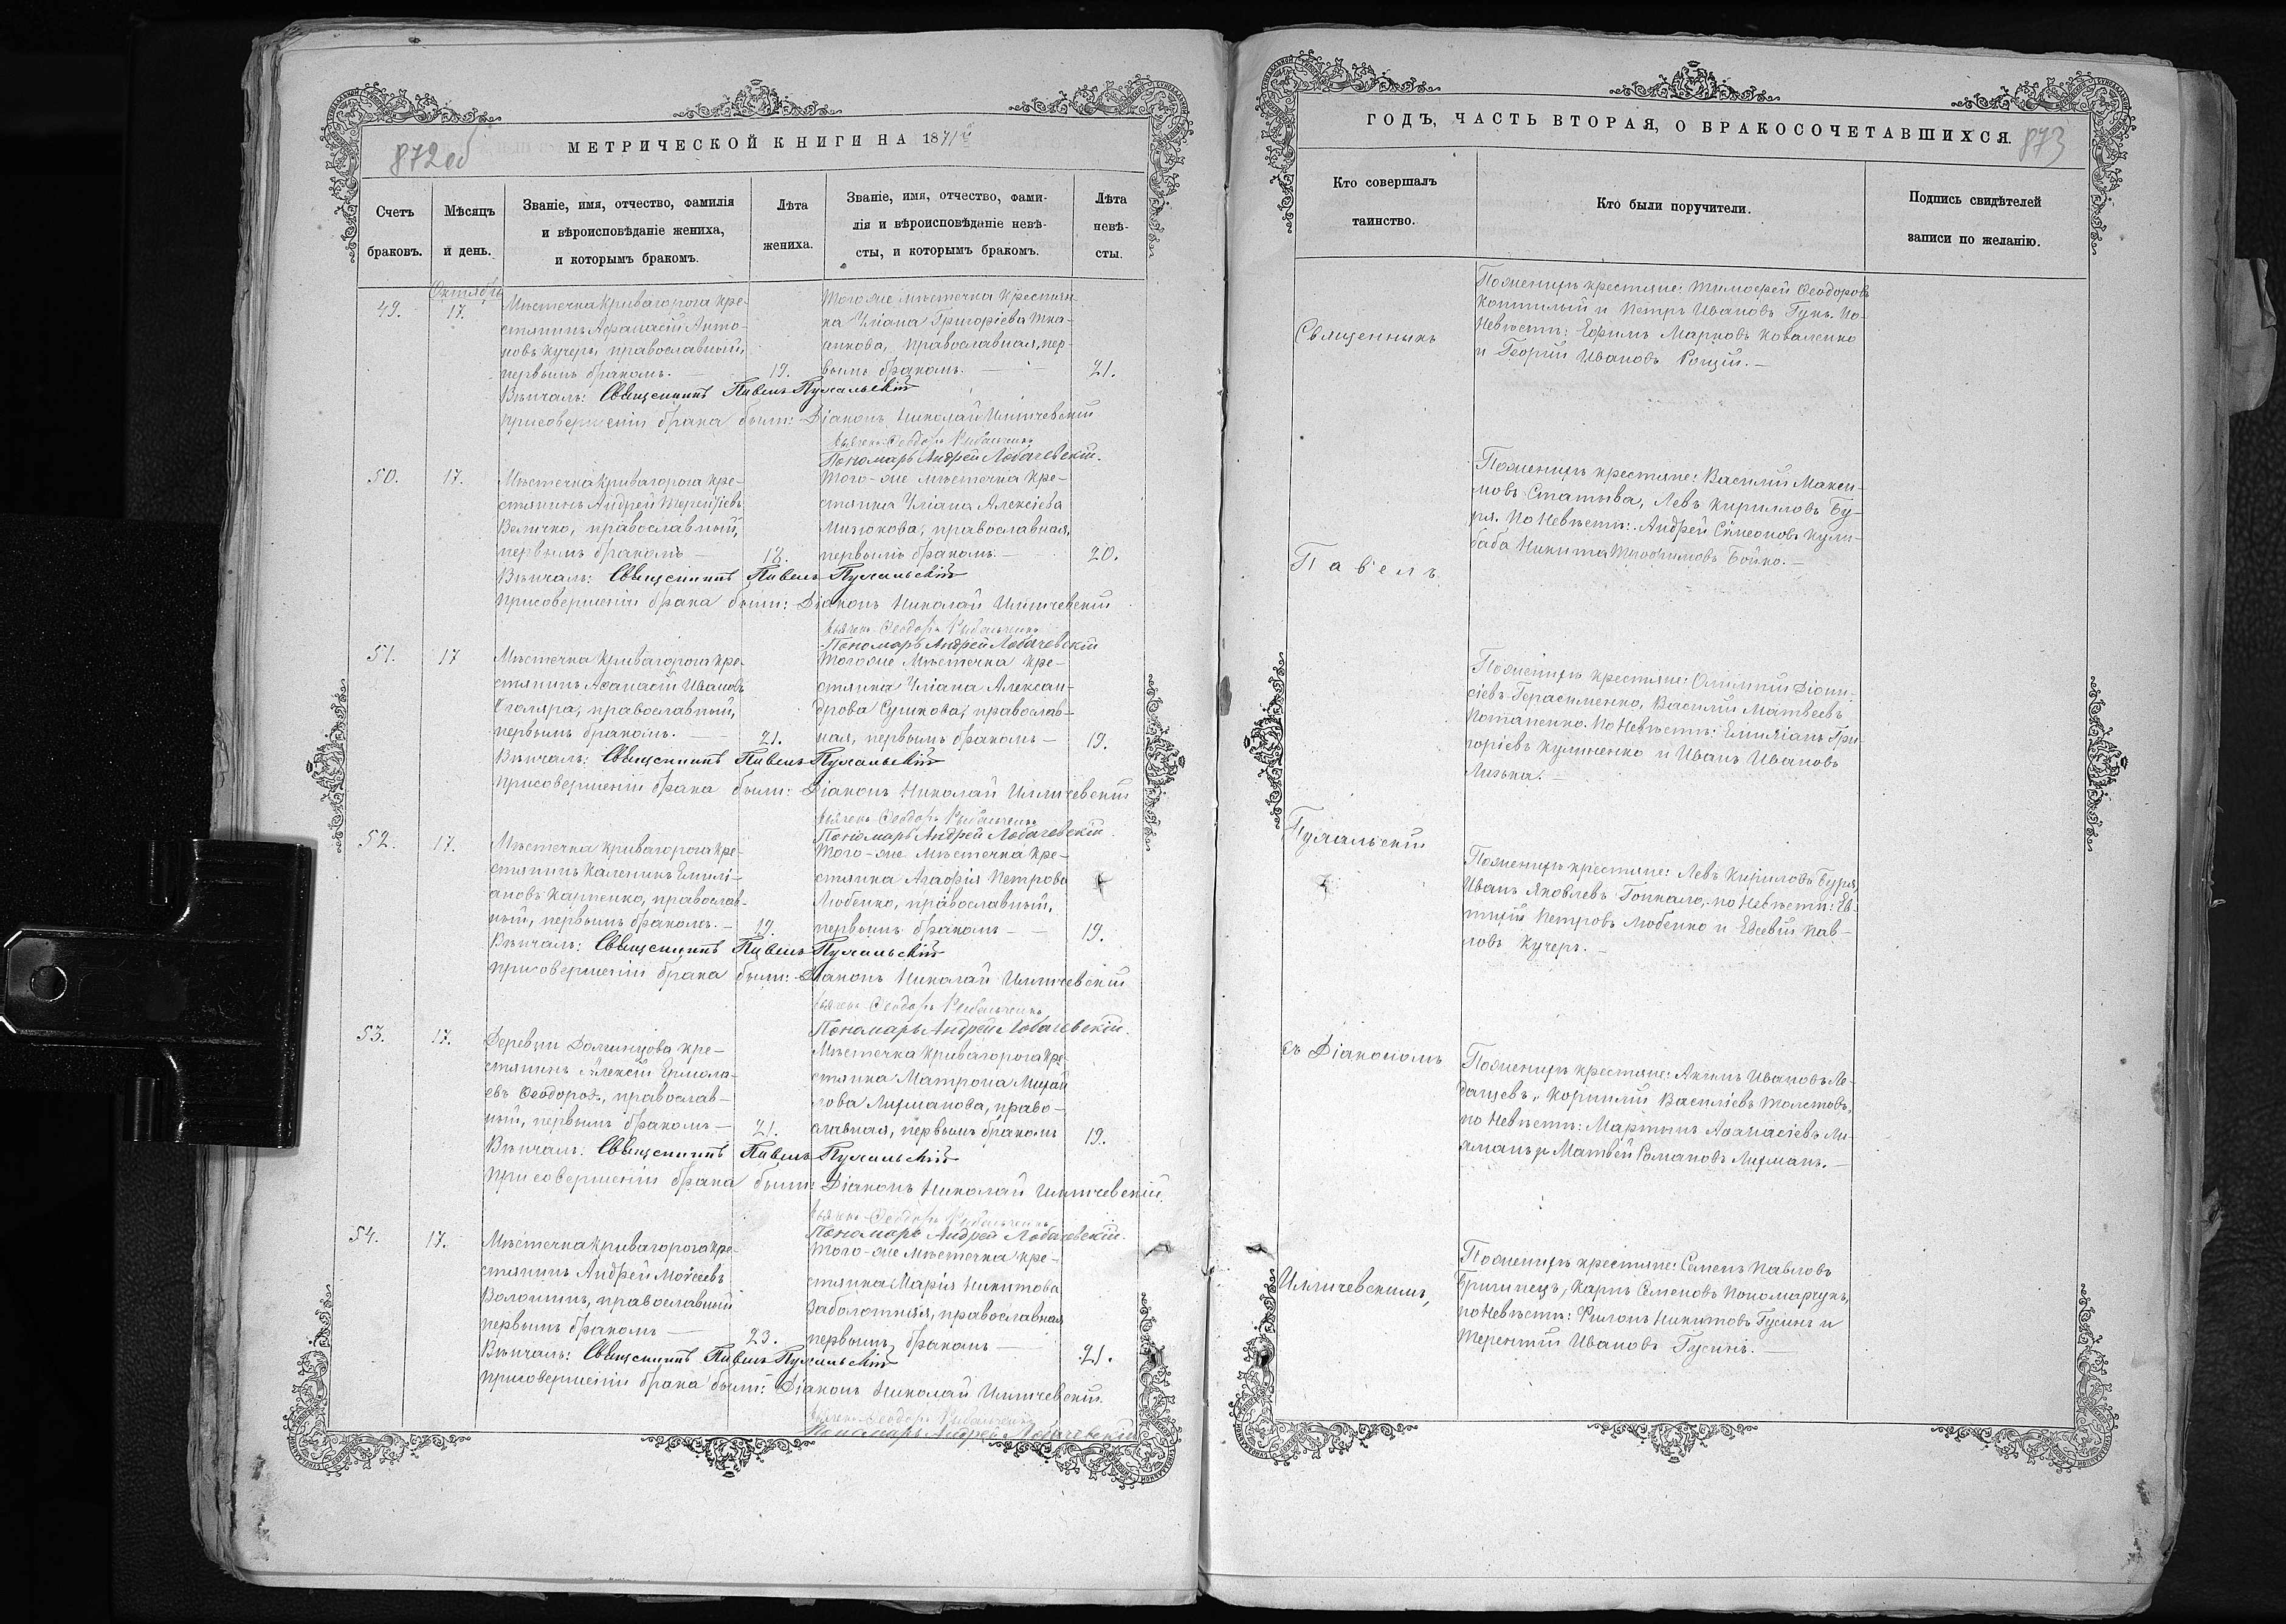 872об
МЕТРИЧЕСКОЙ КНИГИ НА 1871й
Счетъ браковъ.
Мѣсяцъ и день.
Званіе, имя, отчество, фамилія и вѣроисповѣданіе жениха, и которымъ бракомъ.
Лѣта жениха.
Званіе, имя, отчество, фами-
лія и вѣроисповѣданіе невѣ-
сты, и которымъ бракомъ.
Лѣта невѣ-
сты.
Октябрь
49.
17.
Мѣстечка Кривагорога кре-
стянинъ Афанасій Анто-
новъ Кучеръ, православный,
первымъ бракомъ. —
19.
Того же мѣстечка крестьян-
ка Уліана Григоріева
православная, пер-
вымъ бракомъ. —
21.
Вѣнчалъ: Священникъ Павелъ
присовершеніи брака были: Діаконъ Николай Илличевскій
Феодоръ
Пономарь Андрей Лобачевскій.
50.
17.
Мѣстечка Кривагорога кре-
стянинъ Андрей Терентіевъ
Величко, православный,
первымъ бракомъ —
18.
Того-же мѣстечка кре-
стянка Уліана Алексіева
православная,
первымъ бракомъ. —
20.
Вѣнчалъ: Священникъ Павелъ
присовершеніи брака были: Діаконъ Николай Илличевскій
Феодоръ
Пономарь Андрей Лобачевскій
51.
17
Мѣстечка Кривагорога кре-
стянинъ Афанасій Ивановъ
Столяра, православный,
первымъ бракомъ. —
21.
Тогоже Мѣстечка кре-
стянка Уліана Алексан-
дрова Сушкова, православ-
ная, первымъ бракомъ —
19.
Вѣнчалъ: Священникъ Павелъ
присовершеніи брака были: Діаконъ Николай Илличевскій
Феодоръ
Пономарь Андрей Лобачевскій.
52.
17.
Мѣстечка Кривагорога кре-
стянинъ Каленикъ Емилі-
ановъ Карпенко, православ-
ный, первымъ бракомъ. —
19.
Того-же Мѣстечка кре-
стянка Агафія Петрова
Любенко, православный,
первымъ бракомъ —
19.
Вѣнчалъ: Священникъ Павелъ
присовершеніи брака были: Діаконъ Николай Илличевскій
Феодоръ
Пономарь Андрей Лобачевскій.
53.
17.
Деревни Долгинцова кре-
стянинъ Алексій Ермола-
евъ православ-
ный, первымъ бракомъ —
21.
Мѣстечка Кривагорога кре-
стянка Матрона Михай
лова Лиманова, право-
славная, первымъ бракомъ
19.
Вѣнчалъ: Священникъ Павелъ
присовершеніи брака были: Діаконъ Николай Илличевскій
Феодоръ
Пономарь Андрей Лобачевскій.
54.
17.
Мѣстечка Кривагорога кре-
стянинъ Андрей Моисеевъ
Волошинъ, православный
первымъ бракомъ —
23.
Того-же Мѣстечка кре-
стянка Марія Никитова
Заболотняя, православная
первымъ бракомъ —
21.
Вѣнчалъ: Священникъ Павелъ
присовершеніи брака были: Діаконъ Николай Илличевскій
Феодоръ
Пономарь Андрей Лобачевскій
ГОДЪ, ЧАСТЬ ВТОРАЯ, О БРАКОСОЧЕТАВШИХСЯ.
873
Кто совершалъ таинство.
Кто были поручители.
Подпись свидѣтелей записи по желанію.
Священникъ
Павелъ
съ Діакономъ
Илличевскимъ,
Поженихѣ крестяне: Тимофей Феодоровъ
и Петръ Ивановъ Гунь. По-
Невѣстѣ: Ефимъ Марковъ Коваленко
и Георгій Ивановъ —
Поженихѣ крестяне: Василій Макси-
мовъ Статыва, Левъ Кириловъ Бу-
ря. По Невѣстѣ: Андрей Симеоновъ Кули-
баба Никита Трофимовъ Бойко. —
Поженихѣ крестяне: Діони-
сіевъ Герасименко, Василій Матвеевъ
Потапенко. По Невѣстѣ: Емиліанъ Гри-
горіевъ и Иванъ Ивановъ
Поженихѣ крестяне: Левъ Кириловъ Буря,
Иванъ Яковлевъ по Невѣстѣ: Ев-
Петровъ Любенко и Евсевій Пав-
ловъ Кучеръ. —
Поженихѣ крестяне: Акимъ Ивановъ Ле-
дащевъ, Корнилій Василіевъ Толстовъ,
по Невѣстѣ: Мартынъ Афанасіевъ Ли-
и Матвей Романовъ Лиманъ. —
Поженихѣ крестяне: Семенъ Павловъ
Карпъ Семеновъ Пономарчукъ,
по Невѣстѣ: Филонъ Никитовъ Гусинъ и
Терентій Ивановъ Гусинъ. —